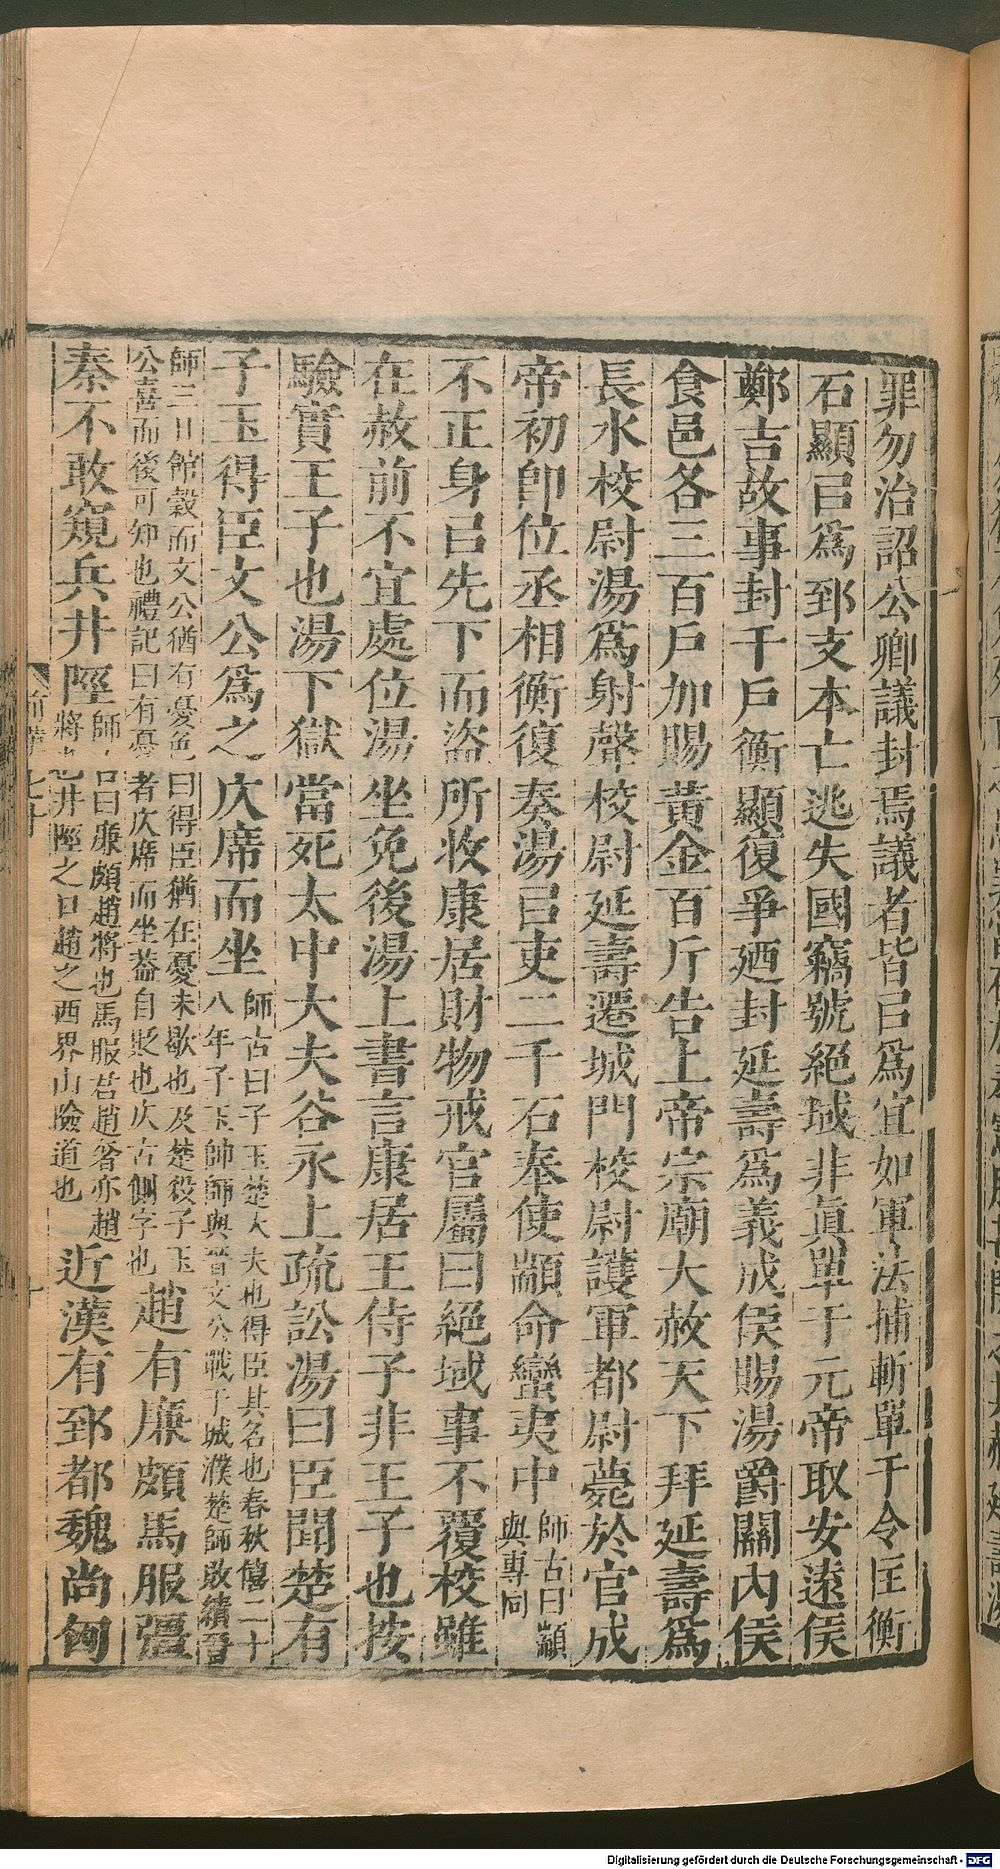 罪勿治詔公卿議封焉議者皆㠯爲宜如軍法捕斬單于令匡衡
石顯㠯爲郅支本亡逃失國竊號絕域非眞單于元帝取安遠侯
鄭吉故事封千戶衡顯復爭廼封延壽爲義成侯賜湯爵關內侯
食邑各三百戶加賜黃金百斤告上帝宗廟大赦天下拜延壽爲
長水校尉湯爲射聲校尉延壽遷城門校尉護軍都尉薨於官成
帝初卽位丞相衡復奏湯㠯吏二千石奉使顓命蠻夷中師古曰顓與專同
不正身㠯先下而盜所收康居財物戒官屬曰絕域事不覆校雖
在赦前不宜處位湯坐免後湯上書言康居王侍子非王子也按
驗實王子也湯下獄當死太中大夫谷永上疏訟湯曰臣聞楚有
子玉得臣文公爲之仄席而坐師古曰子玉楚大夫也得臣其名也春秋僖二十八年子玉帥師與晉文公戰于城濮楚師敗績晉
師三日館穀而文公猶有憂色曰得臣猶在憂未歇也及楚殺子玉公喜而後可知也禮記曰有憂者仄席而坐蓋自貶也仄古側字也趙有廉頗馬服彊
秦不敢窺兵井陘師古曰廉頗趙將也馬服君趙奢亦趙將也井陘之口趙之西界山險道也近漢有郅都魏尚匈
前漢七十
十
Digitalisierung gefördert durch die Deutsche Forschungsgemeinschaft - DFG